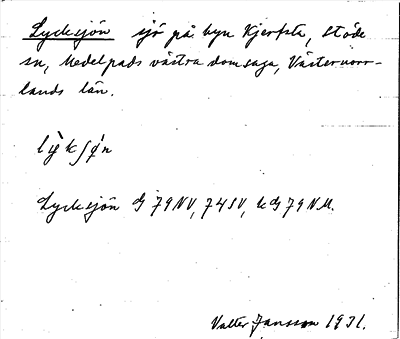 Lycksjön sjö på byn Kjerfsta, Stöde
sn, Medelpads västra domsaga, Västernorr-
lands län.
lỳkʃǿn
Lycksjön G 79 NV, 74 SV, k G 79 N.M.
Valter Jansson 1931.